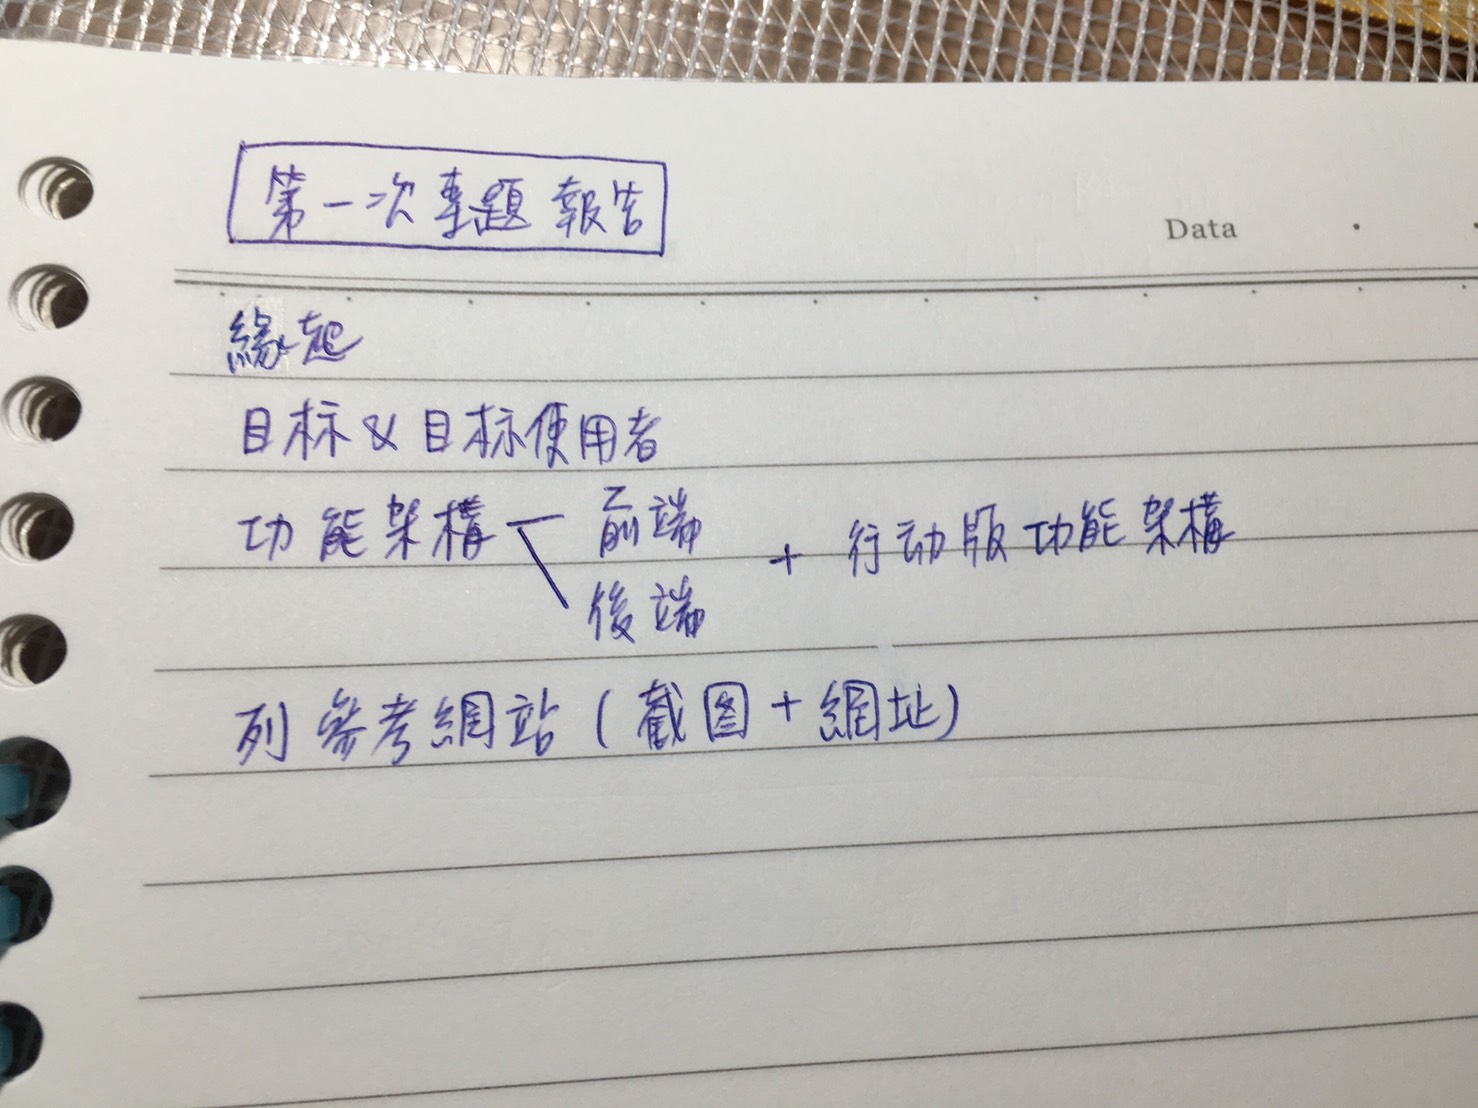 第一次專題報告
Data
緣起
目标 & 目标使用者
功能架構 前端 + 行动版功能架構
後端
列參考網站(截图+網址)